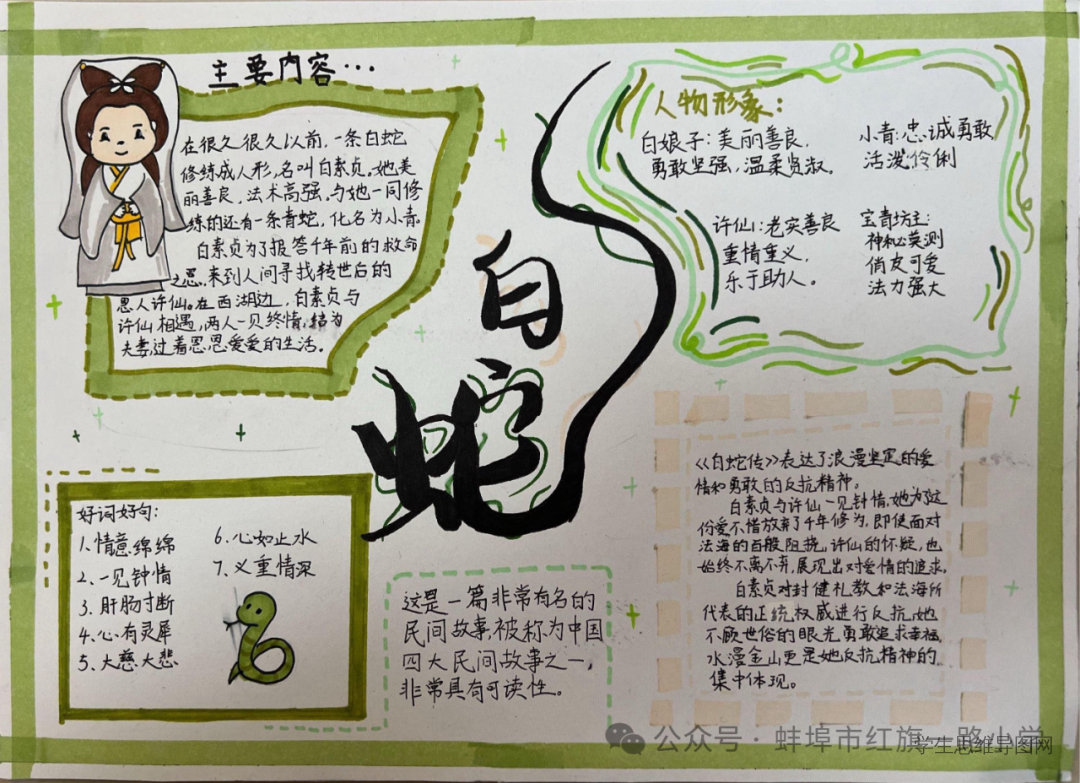 主要内容…
在很久很久以前，一条白蛇
修练成人形，名叫白素贞。她美
丽善良，法术高强。与她一同修
练的还有一条青蛇，化名为小青。
白素贞为了报答千年前的救命
之恩，来到人间寻找转世后的
恩人许仙。在西湖边，白素贞与
许仙相遇，两人一见终情，结为
夫妻，过着恩恩爱爱的生活。
白
蛇
人物形象：
白娘子：美丽善良，
勇敢坚强，温柔贤淑。
小青：忠诚勇敢
活泼伶俐
许仙：老实善良
重情重义，
乐于助人。
宝青坊主：
神秘莫测
俏皮可爱
法力强大
好词好句：
1、情意绵绵
2、一见钟情
3、肝肠寸断
4、心有灵犀
5、大慈大悲
6、心如止水
7、义重情深
这是一篇非常有名的
民间故事，被称为中国
四大民间故事之一，
非常具有可读性。
《白蛇传》表达了浪漫坚定的爱
情和勇敢的反抗精神。
白素贞与许仙一见钟情，她为了这
份爱不惜放弃了千年修为，即使面对
法海的百般阻挠，许仙的怀疑，也
始终不离不弃，展现出对爱情的追求。
白素贞对封健礼教和法海所
代表的正统权威进行反抗，她
不顾世俗的眼光，勇敢追求幸福，
水漫金山更是她反抗精神的
集中体现。
公众号·蚌埠市红旗一路小学
学生思维导图网